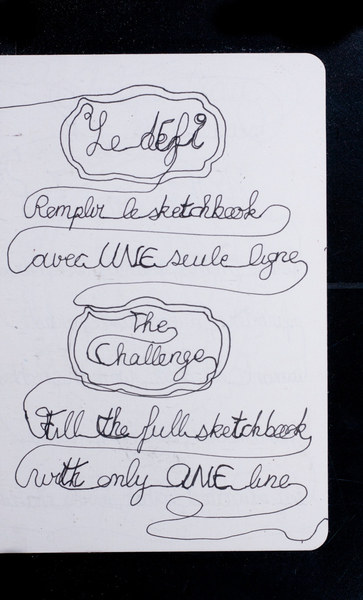 Le défi
Remplir le sketchbook
avec UNE seule ligne
The
Challenge
Fill the full sketchbook
with only ONE line